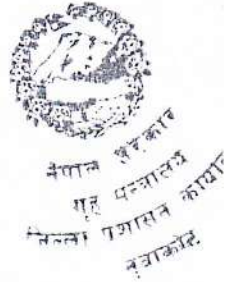 नेपाल सरकार
गृह मन्त्रालय
जिल्ला प्रशासन कार्याल
नुवाकोट